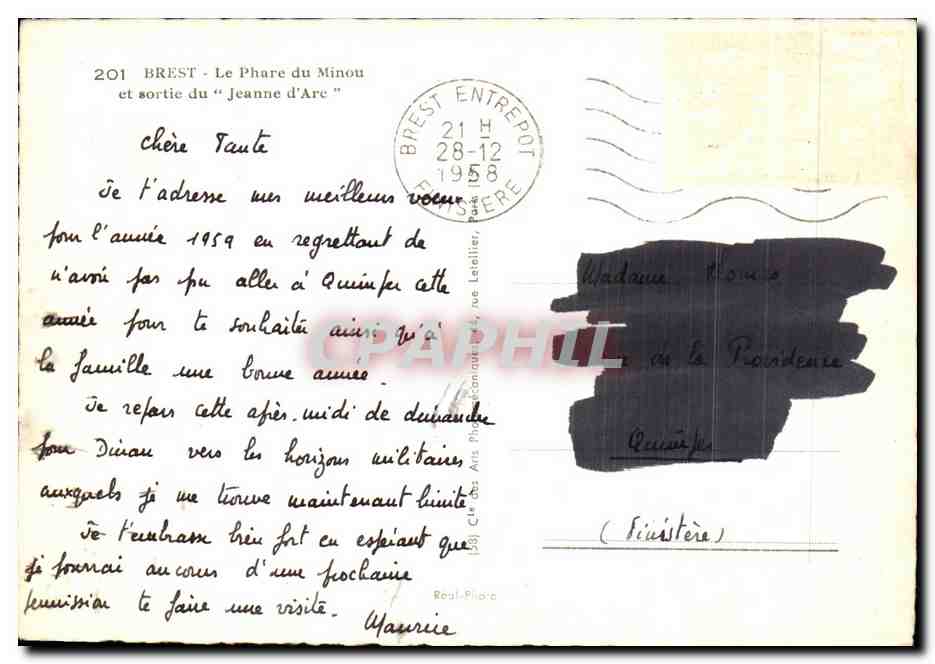 201 BREST - Le Phare du Minou
et sortie du "Jeanne d'Arc"
BREST ENTREPOT
21 H
28-12
1958
FINISTERE
Chère Tante
Je t'adresse mes meilleurs voeux
pour l'année 1959 en regrettant de
n'avoir pas pu aller à Quimper cette
année pour te souhaiter ainsi qu'à
la famille une bonne année.
Je repars cette après-midi de dimanche
pour Dinan vers les horizons militaires
auxquels je me trouve maintenant limité.
Je t'embrasse bien fort en espérant que
je pourrai au cours d'une prochaine
permission te faire une visite.
Maurice
(58) Cie des Arts Photomécaniques, rue Letellier, Paris
Real-Photo
CPAPHIL
Madame
de la Providence
Quimper
(Finistère)